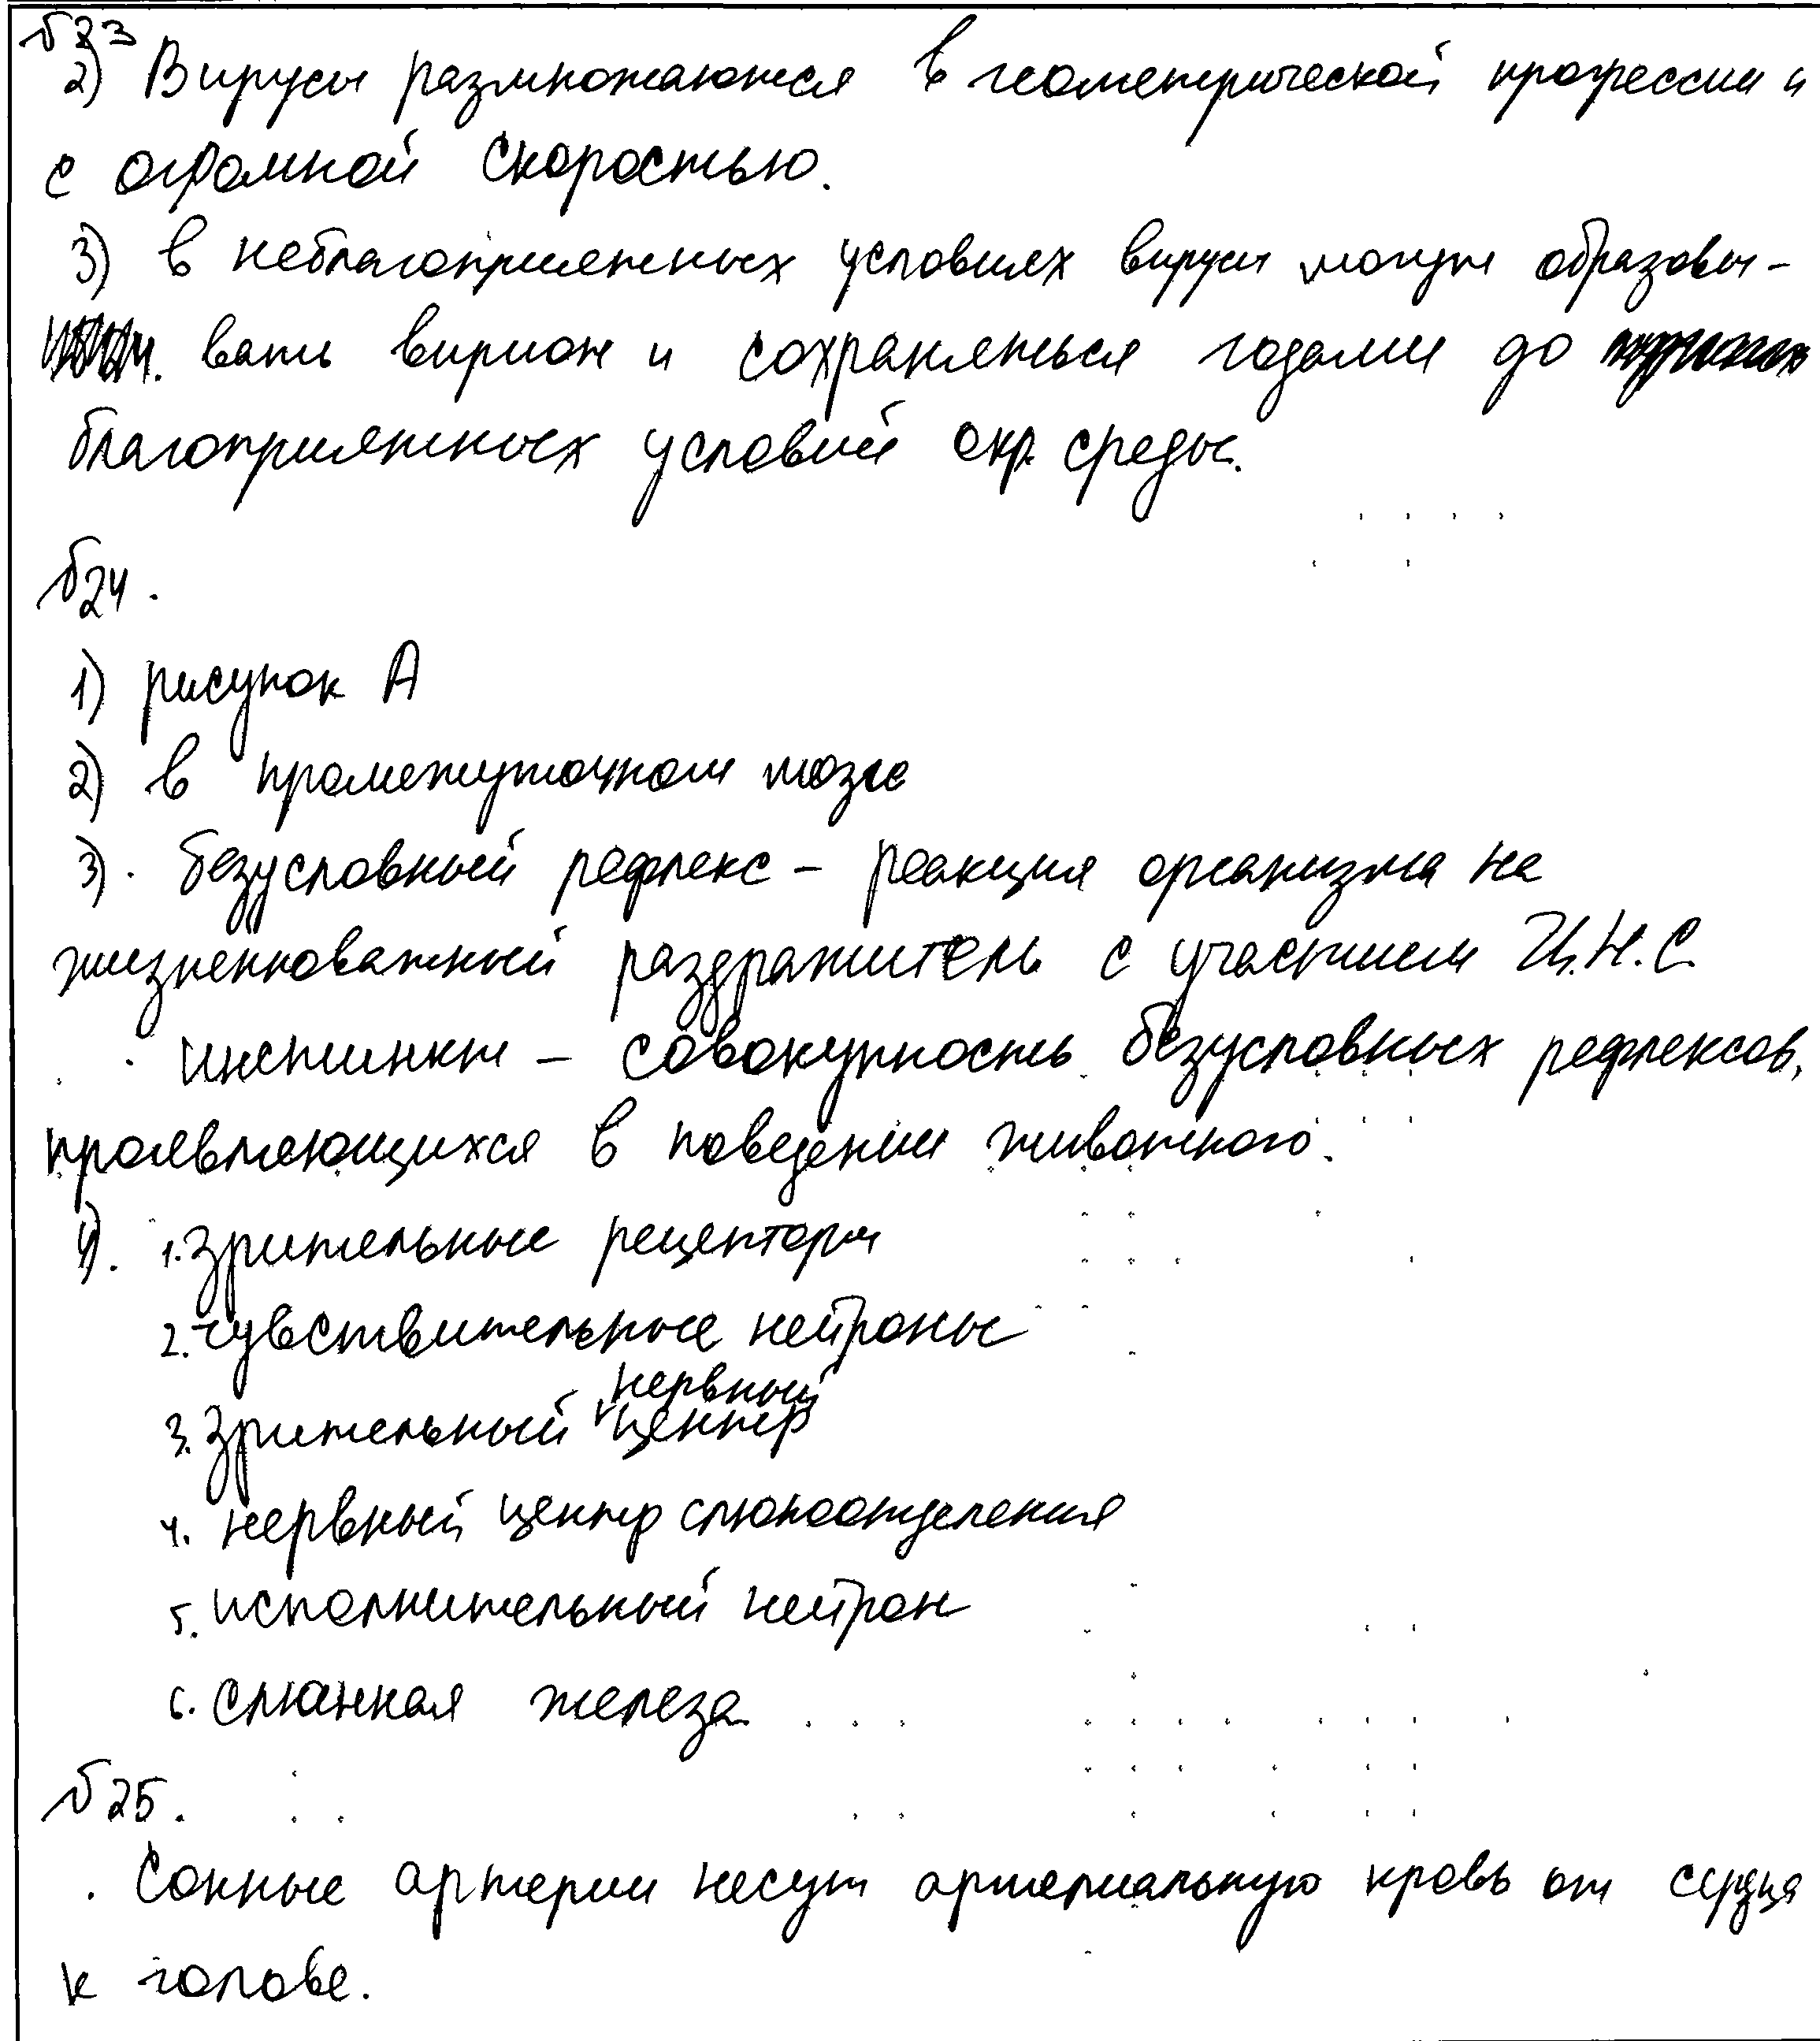 №23
2) Вирусы размножаются в геометрической прогрессии и
с огромной скоростью.
3) в неблагоприятных условиях вирусы могут образовы-
вать вирион и сохраняться годами до
благоприятных условий окр. среды.
№24.
1) рисунок А
2) в промежуточном мозге
3). безусловный рефлекс – реакция организма на
жизненноважный раздражитель с участием Ц.Н.С.
· инстинкт – совокупность безусловных рефлексов,
проявляющихся в поведении животного.
4). 1. зрительные рецепторы
2. чувствительные нейроны
нервный
3. зрительный центр
4. нервный центр слюноотделения
5. исполнительный нейрон
6. слюнная железа
№25.
· Сонные артерии несут артериальную кровь от сердца
к голове.